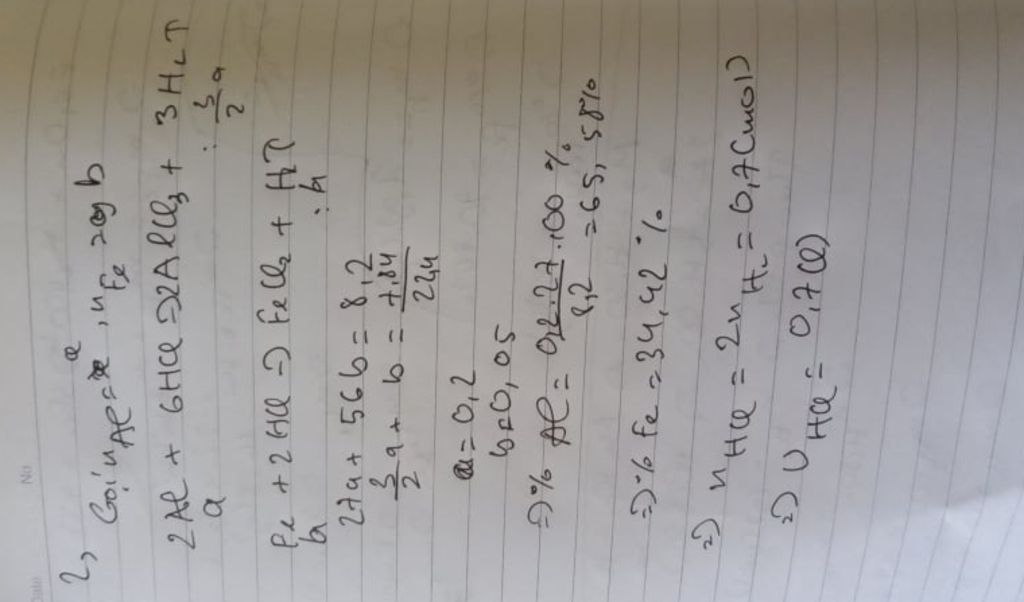 No
2,
Gọi nAl = a, nFe = b
2Al + 6HCl => 2AlCl3 + 3H2↑
a 3/2 a
Fe + 2HCl => FeCl2 + H2↑
b b
27a + 56b = 8,2
3/2 a + b = 7,84/22,4
a = 0,2
b = 0,05
=> % Al = 0,2.27/8,2 .100% = 65,58%
=> % Fe = 34,42%
=> nHCl = 2nH2 = 0,7 (mol)
=> VHCl = 0,7 (l)